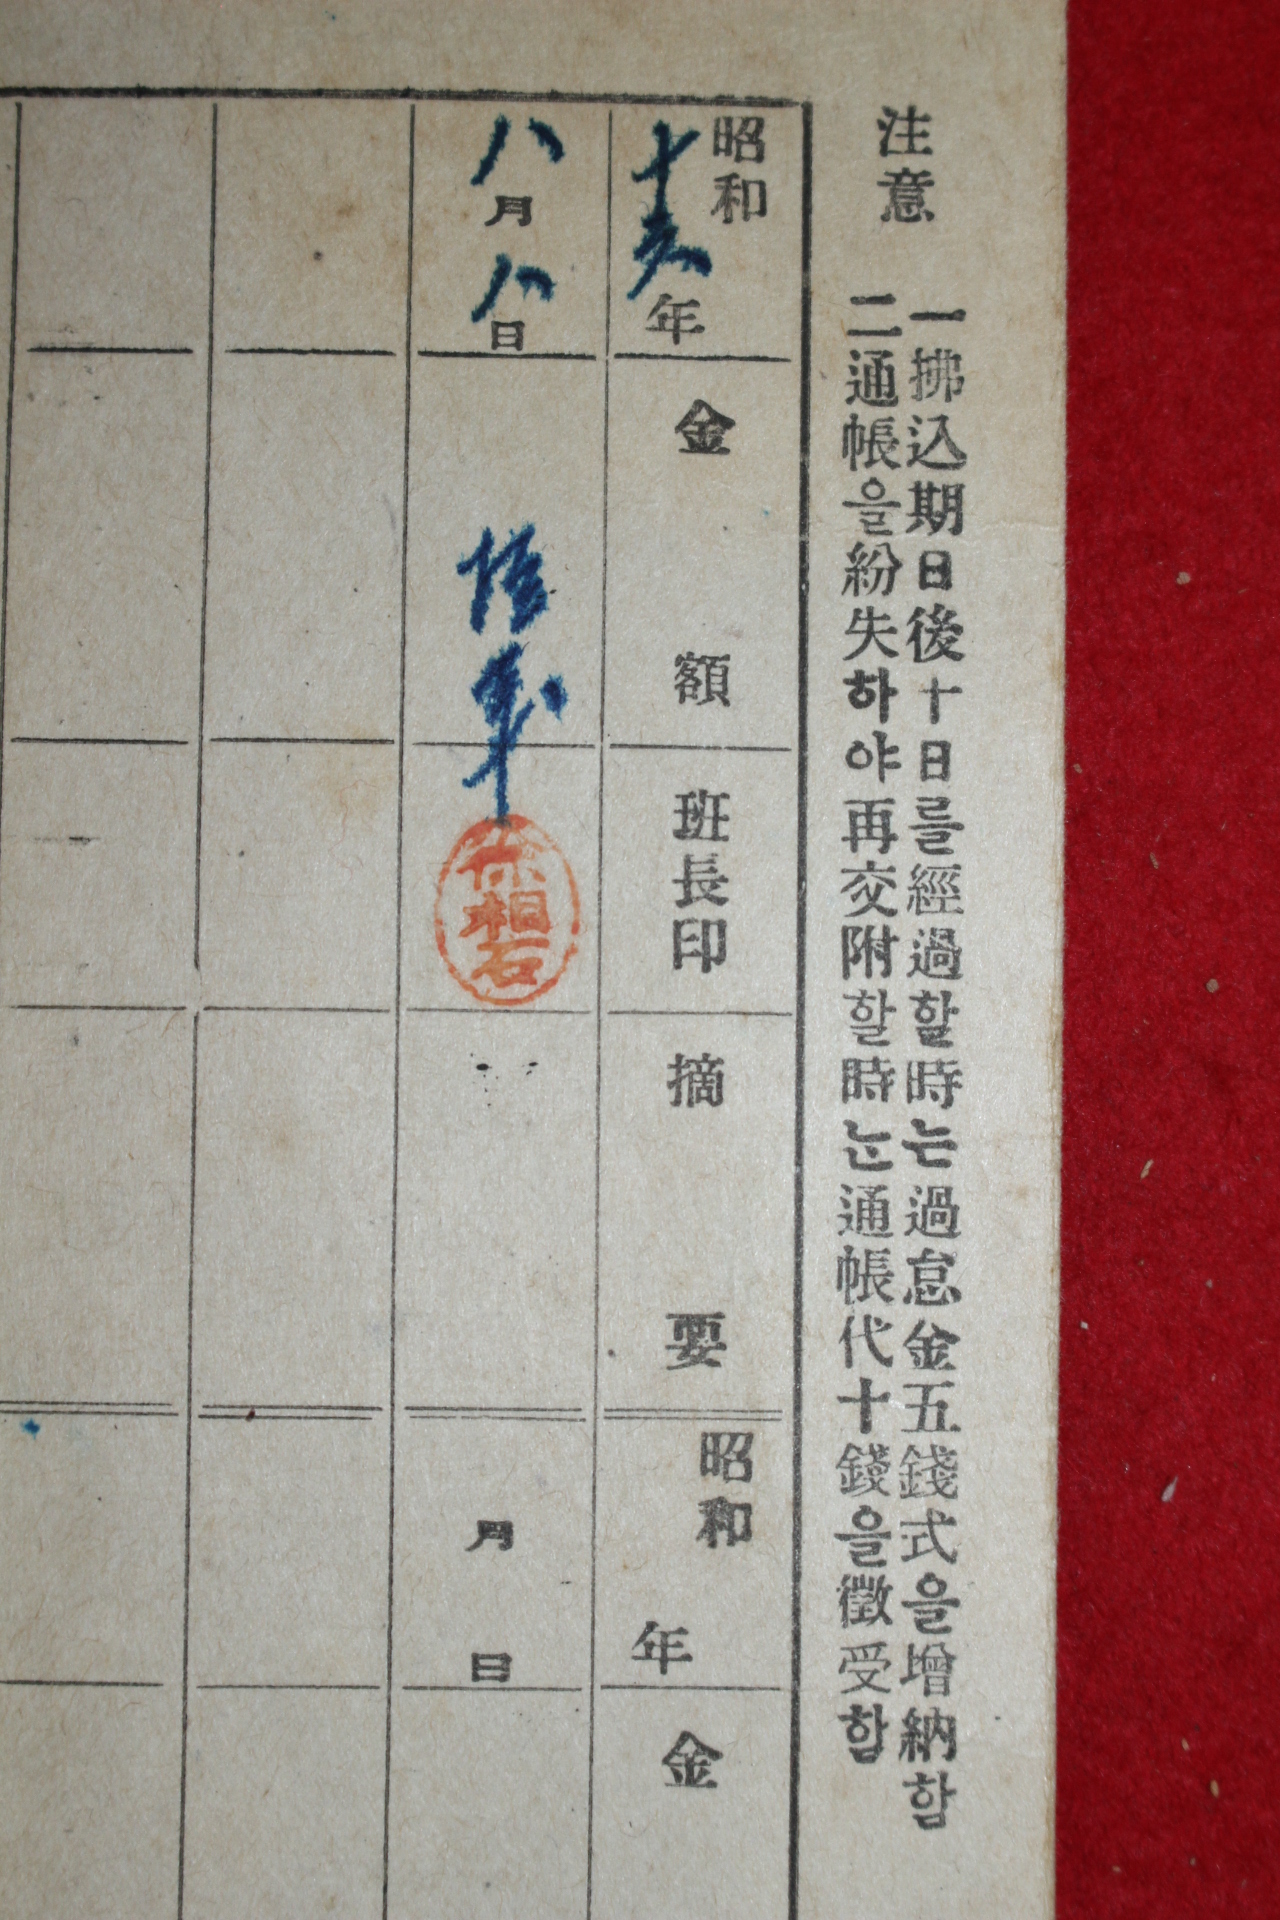 注意
一拂込期日後十日를經過할時는過怠金五錢式을增納함
二通帳을紛失하야再交附할時는通帳代十錢을徵受함
昭和十六年
金額
班長印
摘要
昭和 年
金
八月八日
月 日